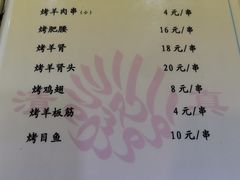 烤羊肉串（小） 4元/串
烤肥腰 16元/串
烤羊肾 18元/串
烤羊肾头 20元/串
烤鸡翅 8元/串
烤羊板筋 4元/串
烤目鱼 10元/串
清 真